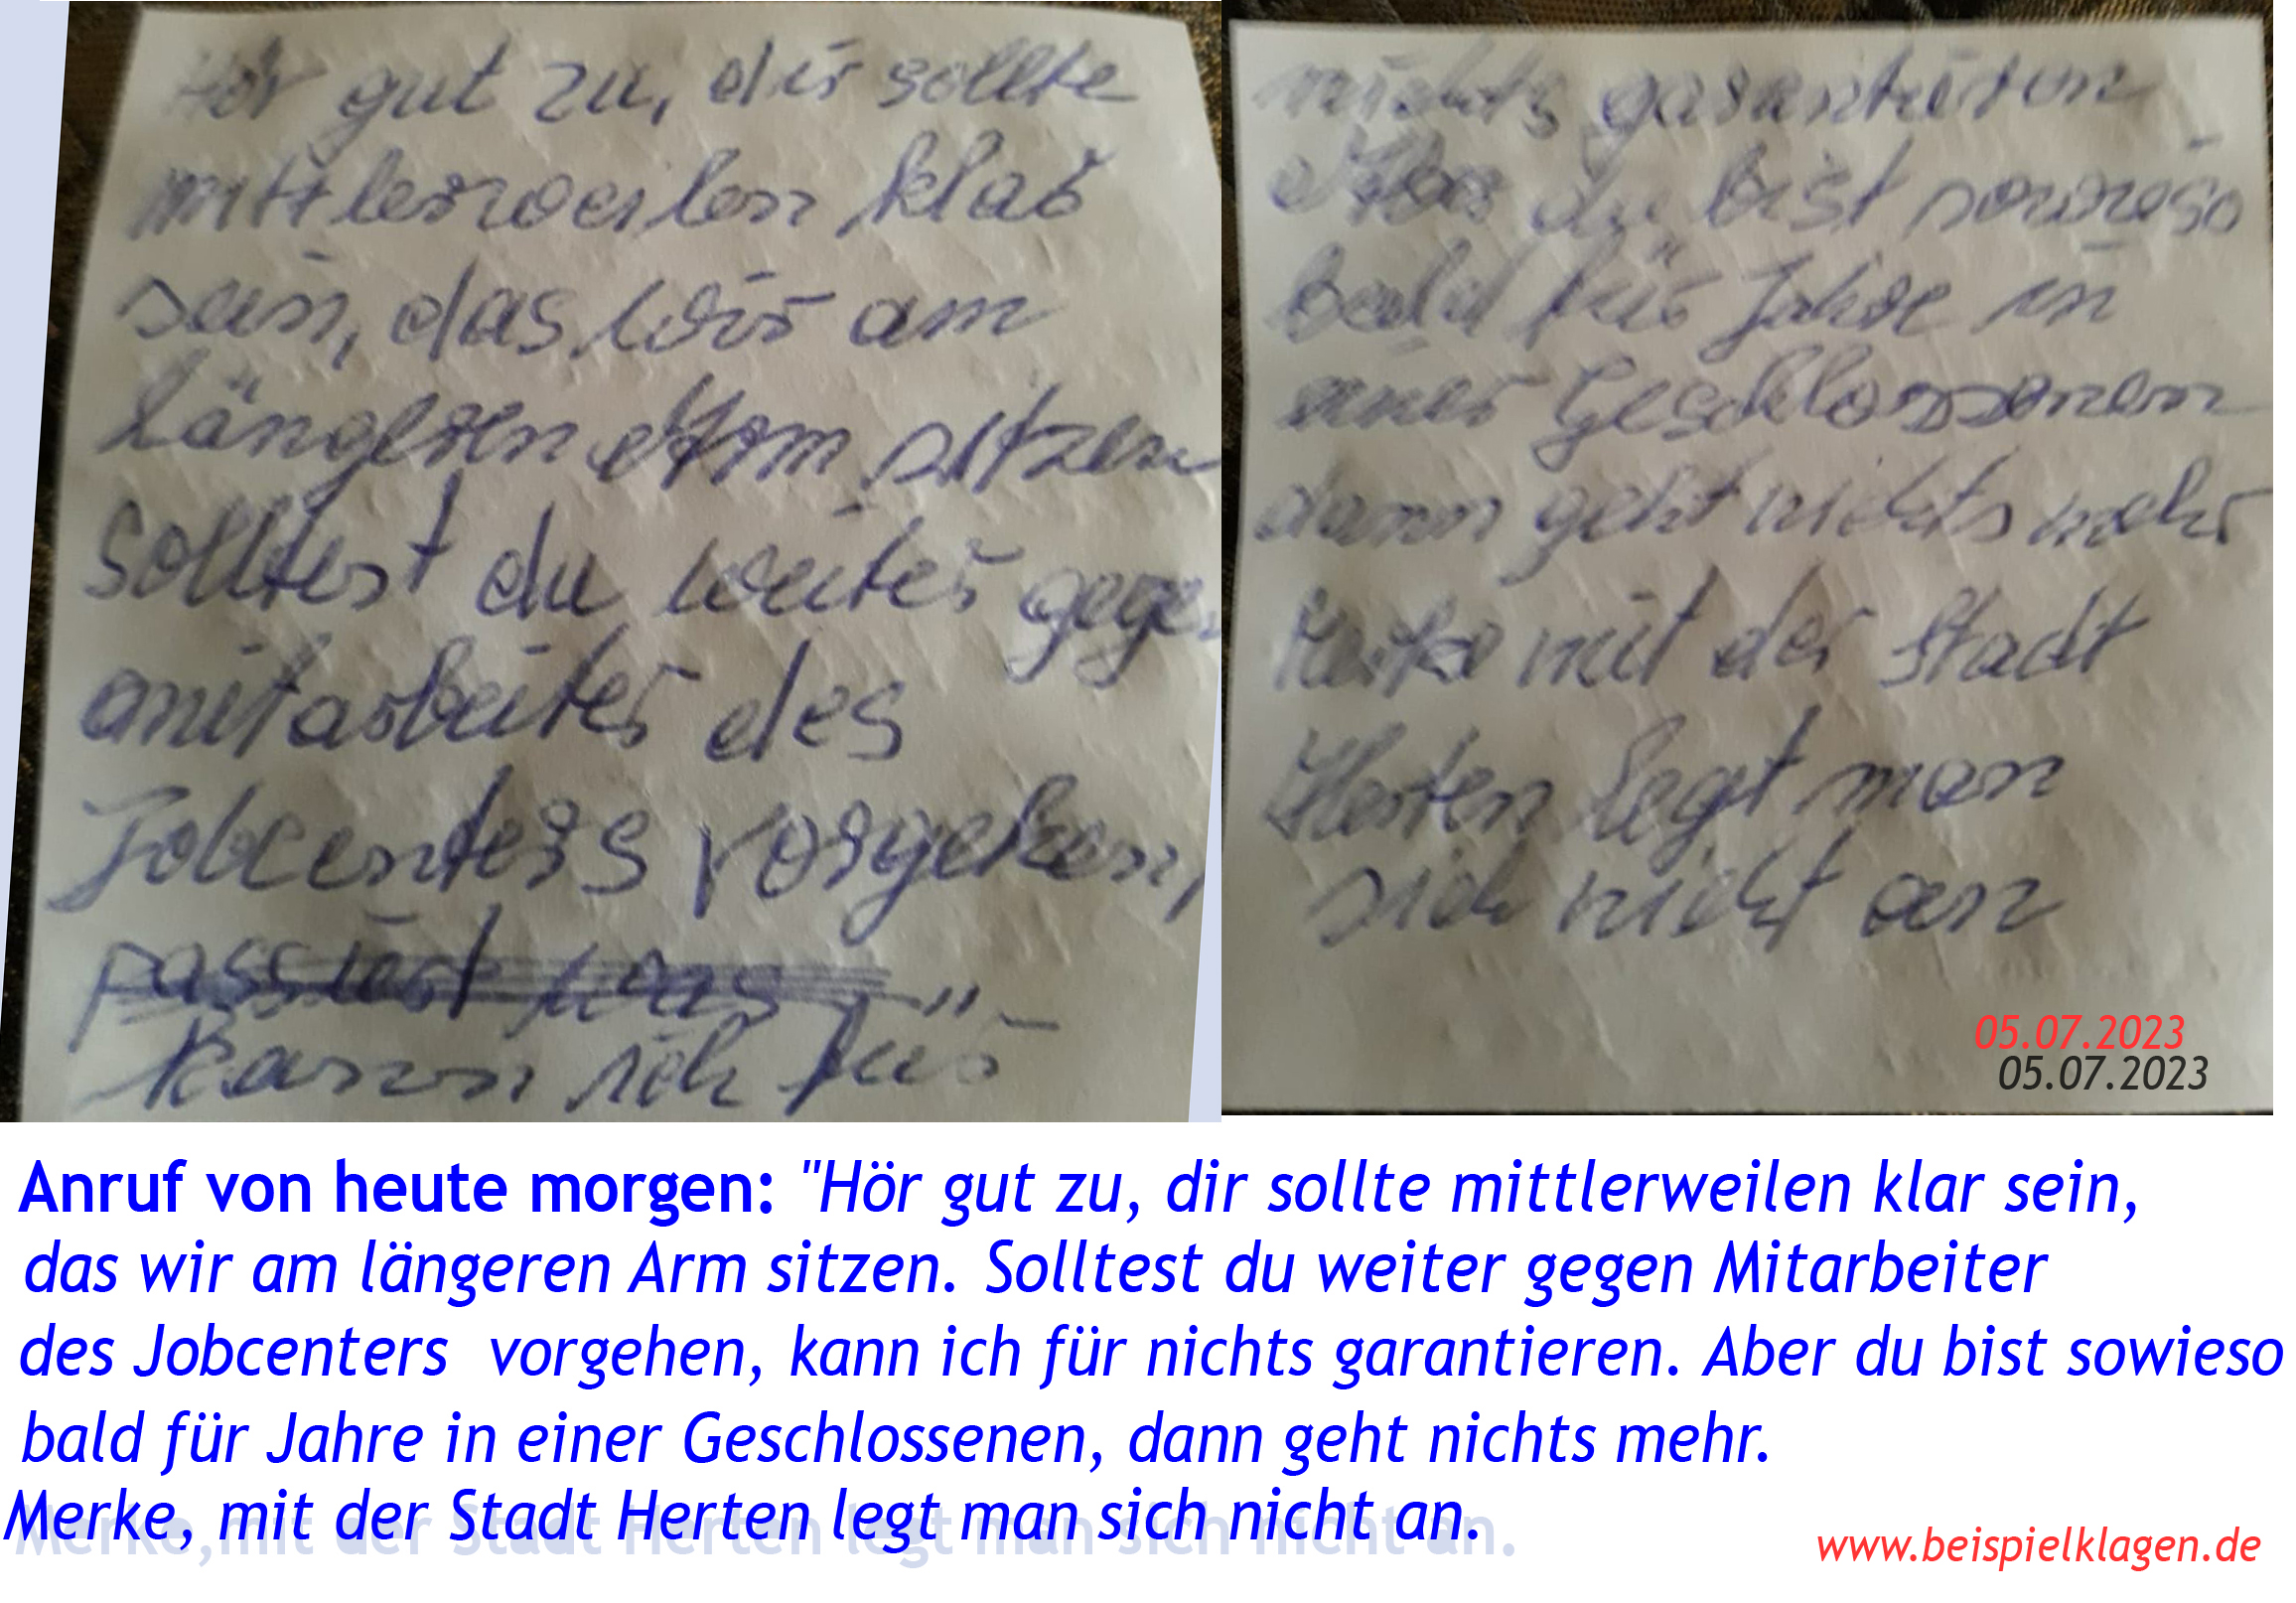 Hör gut zu, dir sollte
mittlerweilen klar
sein, das wir am
längeren Arm sitzen
Solltest du weiter gegen
mitarbeiter des
Jobcenters vorgehen,
passiert was
kann ich für
nichts garantieren
Aber du bist sowieso
bald für Jahre in
einer Geschlossenen
dann geht nichts mehr
Merke mit der Stadt
Herten legt man
sich nicht an
05.07.2023
05.07.2023
Anruf von heute morgen: "Hör gut zu, dir sollte mittlerweilen klar sein,
das wir am längeren Arm sitzen. Solltest du weiter gegen Mitarbeiter
des Jobcenters vorgehen, kann ich für nichts garantieren. Aber du bist sowieso
bald für Jahre in einer Geschlossenen, dann geht nichts mehr.
Merke, mit der Stadt Herten legt man sich nicht an.
www.beispielklagen.de